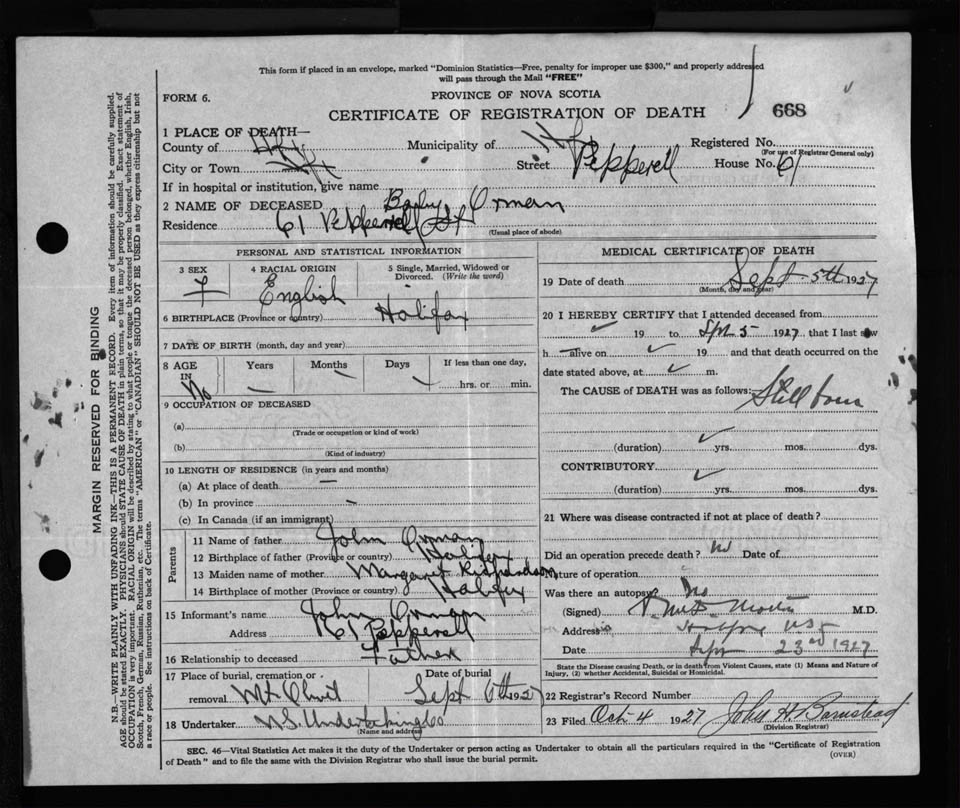 This form if placed in an envelope, marked "Dominion Statistics—Free, penalty for improper use $300," and properly addressed
will pass through the Mail "FREE"
FORM 6.
PROVINCE OF NOVA SCOTIA
CERTIFICATE OF REGISTRATION OF DEATH
668
1 PLACE OF DEATH—
County of Municipality of Registered No.
(For use of Registrar General only)
City or Town Street Pepperell House No. 61
If in hospital or institution, give name
2 NAME OF DECEASED Baby Orman
Residence 61 Pepperell St
(Usual place of abode)
PERSONAL AND STATISTICAL INFORMATION
3 SEX 4 RACIAL ORIGIN 5 Single, Married, Widowed or
Divorced. (Write the word)
F English
6 BIRTHPLACE (Province or country) Halifax
7 DATE OF BIRTH (month, day and year)
8 AGE Years Months Days If less than one day,
IN No hrs. or min.
9 OCCUPATION OF DECEASED
(a)
(Trade or occupation or kind of work)
(b)
(Kind of industry)
10 LENGTH OF RESIDENCE (in years and months)
(a) At place of death —
(b) In province
(c) In Canada (if an immigrant)
Parents
11 Name of father John Orman
12 Birthplace of father (Province or country) Halifax
13 Maiden name of mother Margaret Richardson
14 Birthplace of mother (Province or country) Halifax
15 Informant's name John Orman
Address 61 Pepperell
16 Relationship to deceased Father
17 Place of burial, cremation or Date of burial
removal Mt Olivet Sept 6th 1927
18 Undertaker N.S. Undertaking Co
(Name and address)
MEDICAL CERTIFICATE OF DEATH
19 Date of death Sept 5th 1927
(Month, day and year)
20 I HEREBY CERTIFY that I attended deceased from
✓ 19 to Sept 5 1927 that I last saw
h alive on ✓ 19 and that death occurred on the
date stated above, at ✓ m.
The CAUSE of DEATH was as follows: Still born
(duration) ✓ yrs. mos. dys.
CONTRIBUTORY ✓
(duration) yrs. mos. dys.
21 Where was disease contracted if not at place of death?
Did an operation precede death? No Date of
Nature of operation
Was there an autopsy? No
(Signed) M.D.
Address Halifax N.S.
Date Sept 23rd 1927
State the Disease causing Death, or in death from Violent Causes, state (1) Means and Nature of
Injury, (2) whether Accidental, Suicidal or Homicidal.
22 Registrar's Record Number
23 Filed Oct 4 1927 John H Barnstead
(Division Registrar)
SEC. 46—Vital Statistics Act makes it the duty of the Undertaker or person acting as Undertaker to obtain all the particulars required in the "Certificate of Registration
of Death" and to file the same with the Division Registrar who shall issue the burial permit.
(OVER)
MARGIN RESERVED FOR BINDING
N.B.—WRITE PLAINLY WITH UNFADING INK—THIS IS A PERMANENT RECORD. Every item of information should be carefully supplied.
AGE should be stated EXACTLY. PHYSICIANS should STATE CAUSE OF DEATH in plain terms, so that it may be properly classified. Exact statement of
OCCUPATION is very important. RACIAL ORIGIN will be described by stating to what people or tongue the deceased person belonged, whether English, Irish,
Scotch, French, German, Russian, Ruthenian, etc. The terms "AMERICAN" or "CANADIAN" SHOULD NOT BE USED as they express citizenship but not
a race or people. See instructions on back of Certificate.